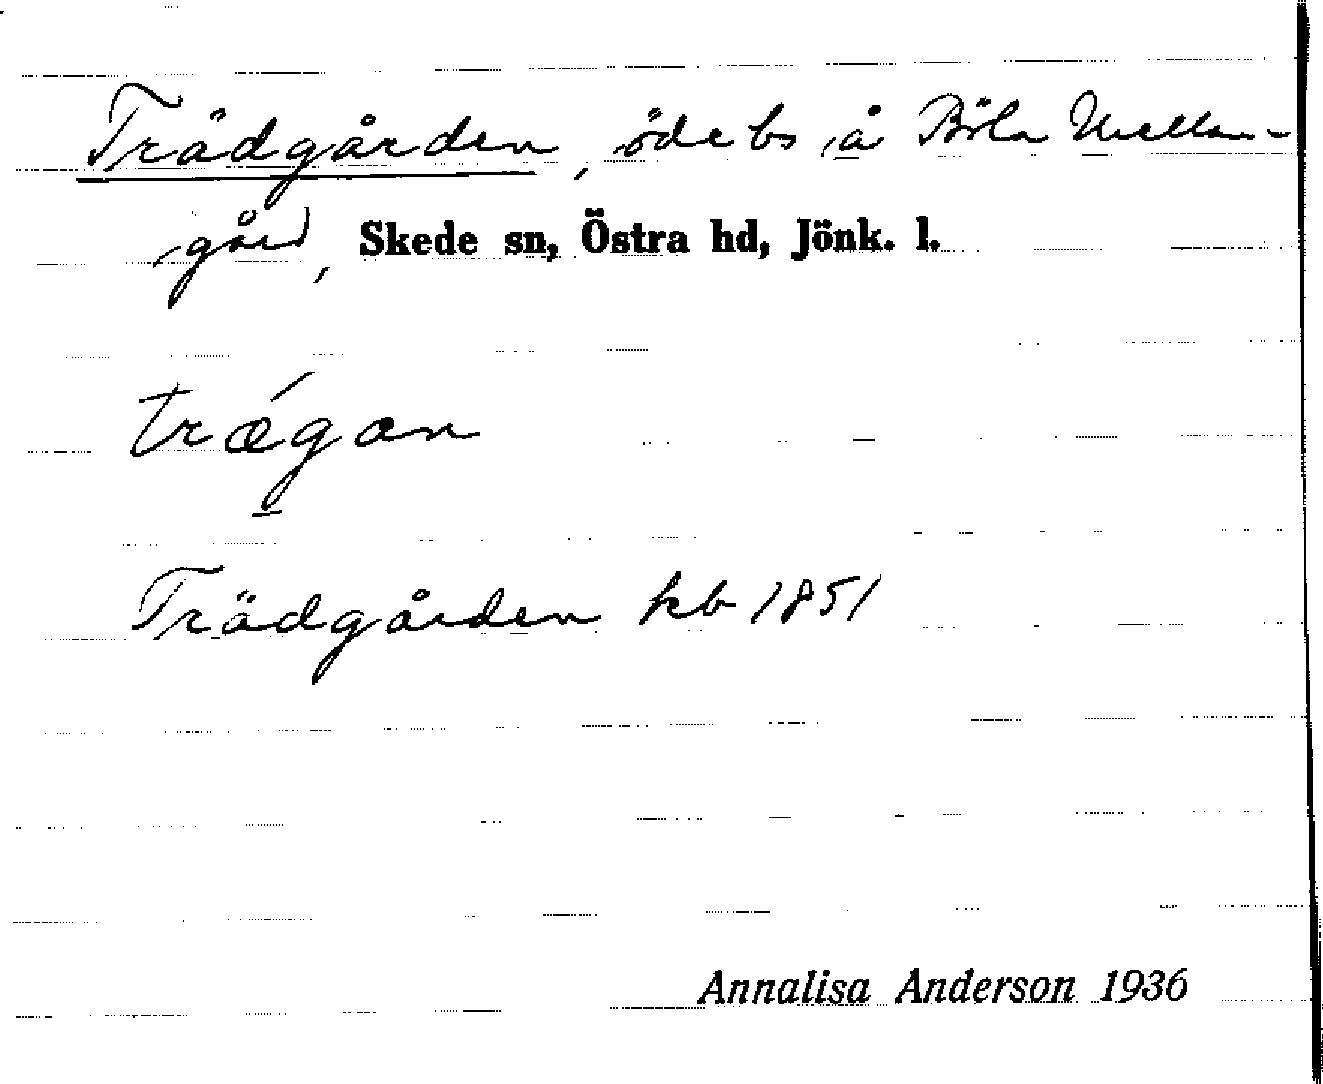 Trädgården, öde bs å Böla Mellan-
gård, Skede sn, Östra hd, Jönk. l.
trǽgan
Trädgården hb 1851
Annalisa Anderson 1936